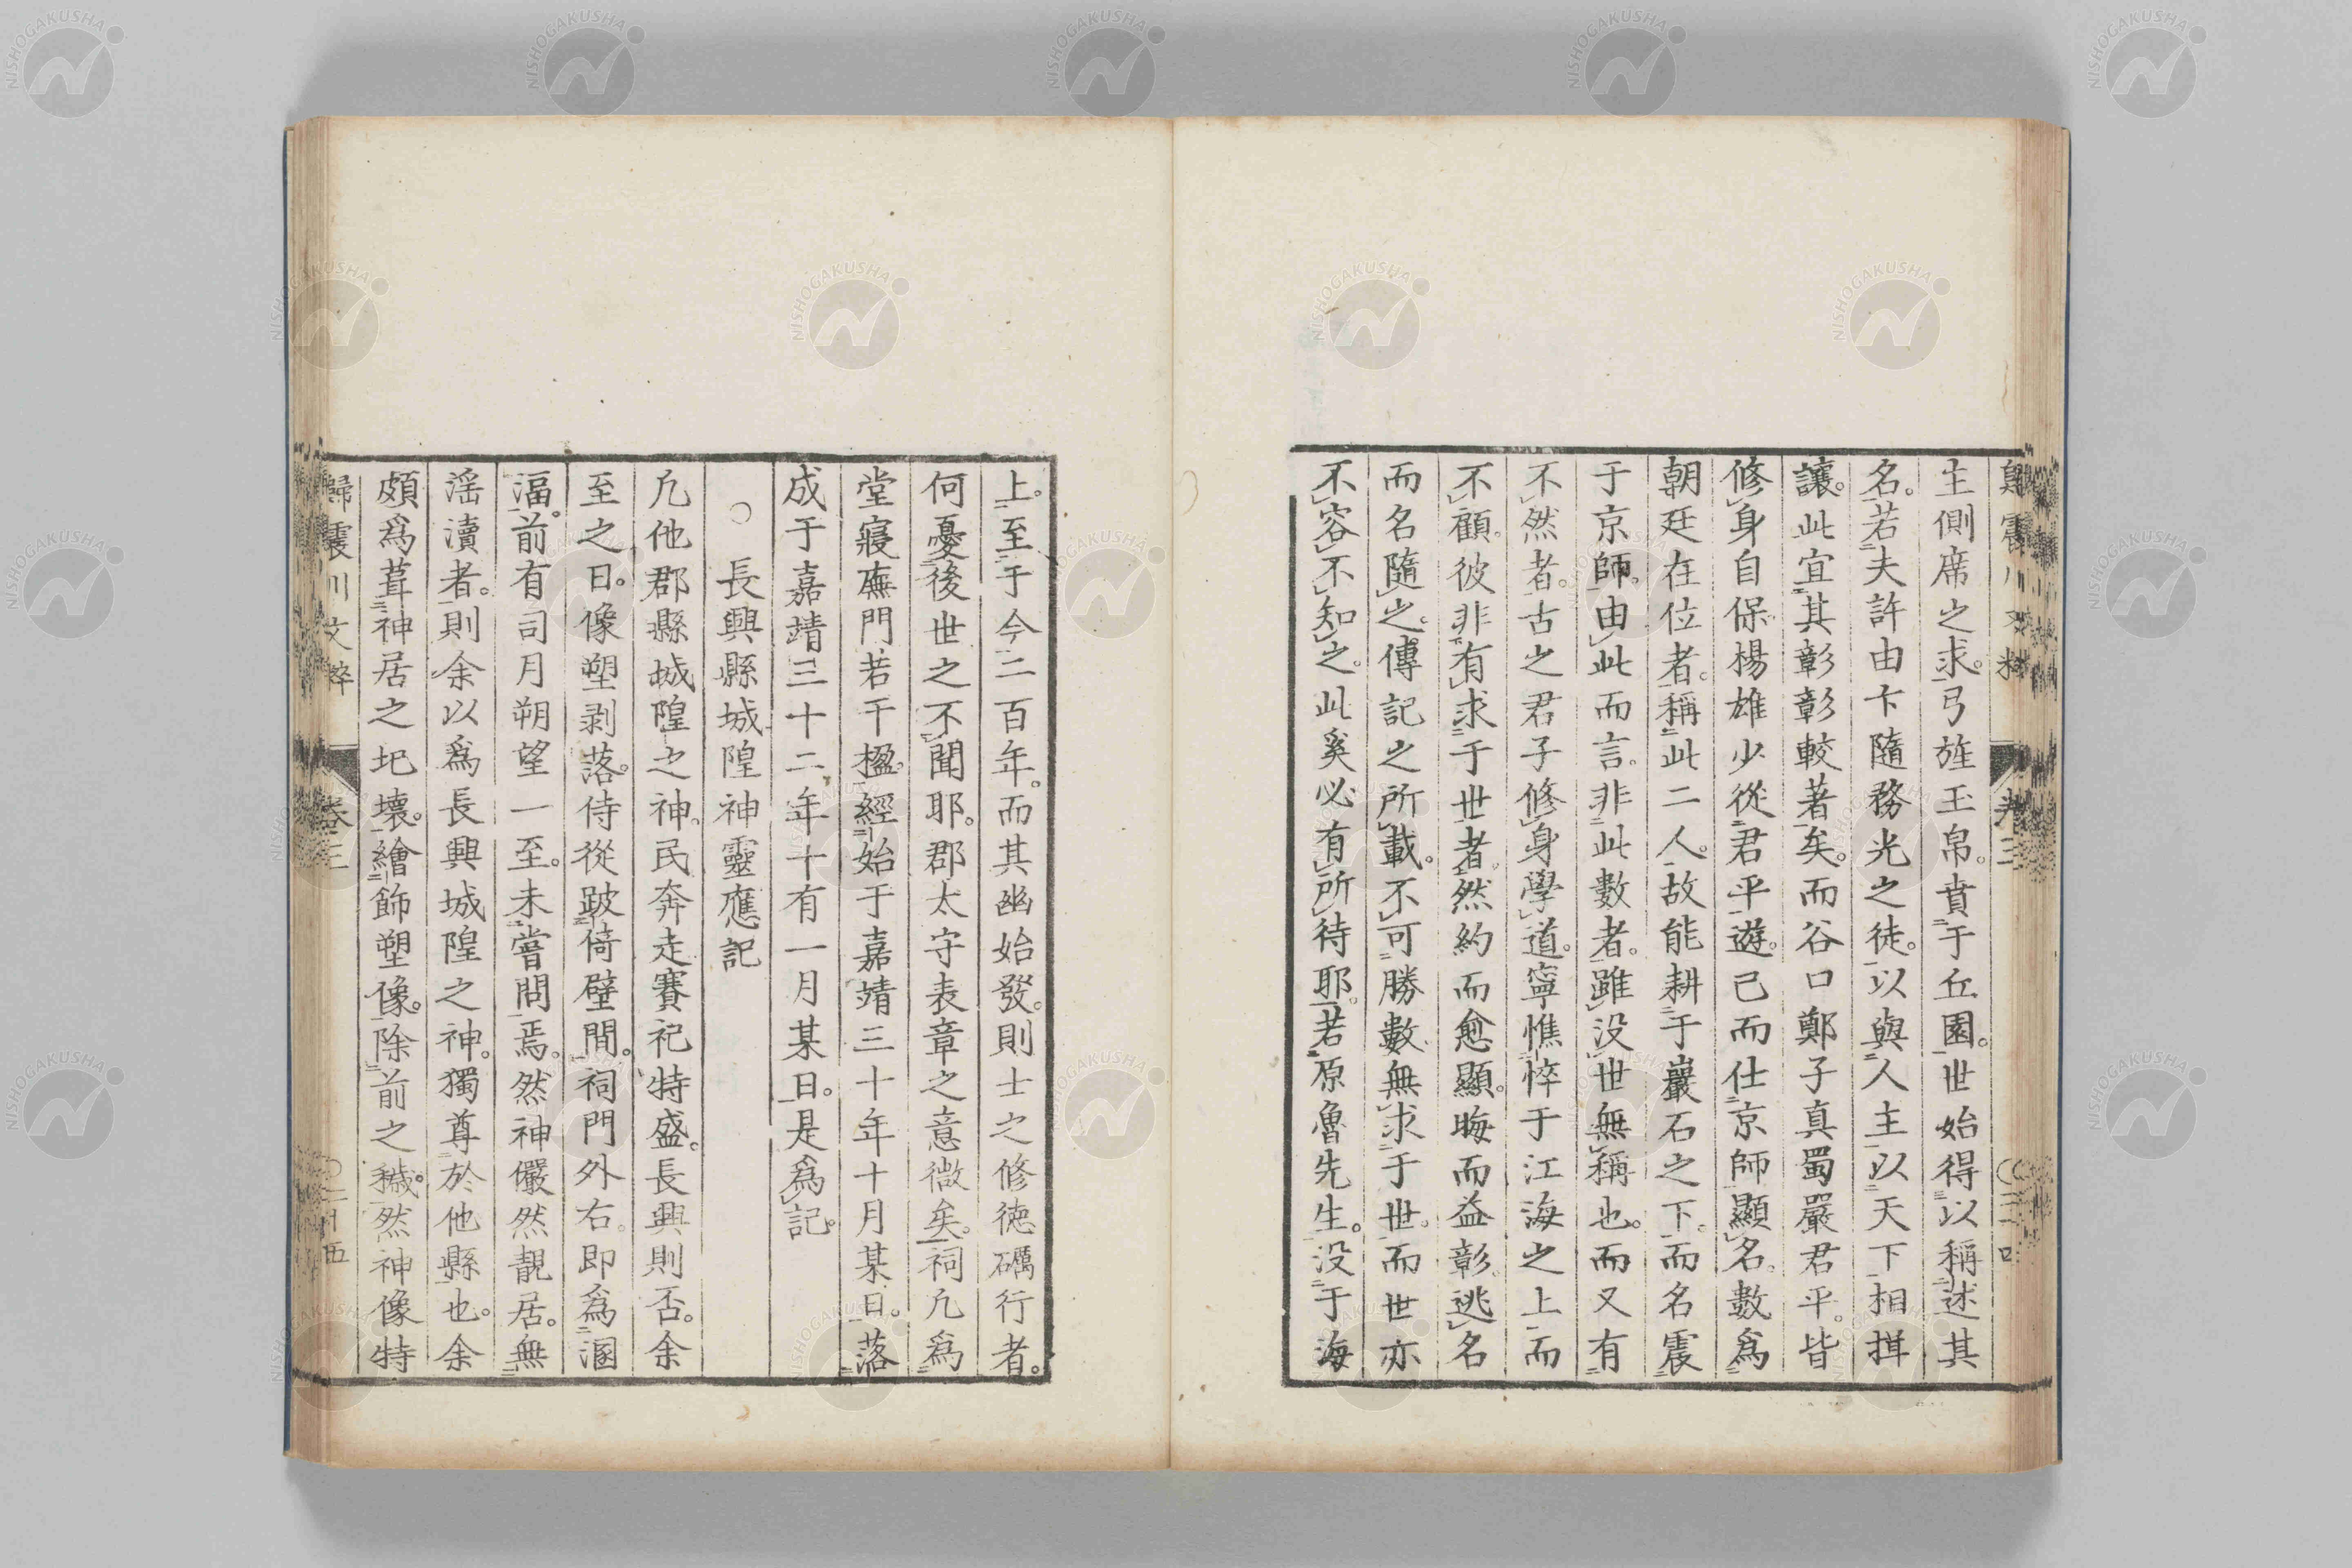 生側席之求。弓旌玉帛。賁于丘園。世始得以稱述其
名。若夫許由卞隨務光之徒。以與人主以天下相揖
讓。此宜其彰彰較著矣。而谷口鄭子真蜀嚴君平。皆
修身自保楊雄少從君平遊。已而仕京師顯名。數爲
朝廷在位者。稱此二人。故能耕于巖石之下。而名震
于京師。由此而言。非此數者。雖没世無稱也。而又有
不然者。古之君子修身學道。寧憔悴于江海之上而
不顧。彼非有求于世者。然約而愈顯。晦而益彰。逃名
而名隨之。傳記之所載。不可勝數。無求于世。而世亦
不容不知之。此奚必有所待耶。若原魯先生。没于海
上。至于今二百年。而其幽始發。則士之修徳礪行者。
何憂後世之不聞耶。郡太守表章之意微矣。祠凢爲
堂寢廡門若干楹。經始于嘉靖三十年十月某日。落
成于嘉靖三十二年十有一月某日。是爲記。
○長興縣城隍神靈應記
凢他郡縣城隍之神。民奔走賽祀特盛。長興則否。余
至之日。像塑剥落。侍從跛倚壁間。祠門外右。即爲溷
湢。前有司月朔望一至。未嘗問焉。然神儼然靚居。無
滛瀆者。則余以爲長興城隍之神。獨尊於他縣也。余
頗爲葺神居之圮壞。繪飾塑像。除前之穢。然神像特
歸震川文粹
卷三
二十五